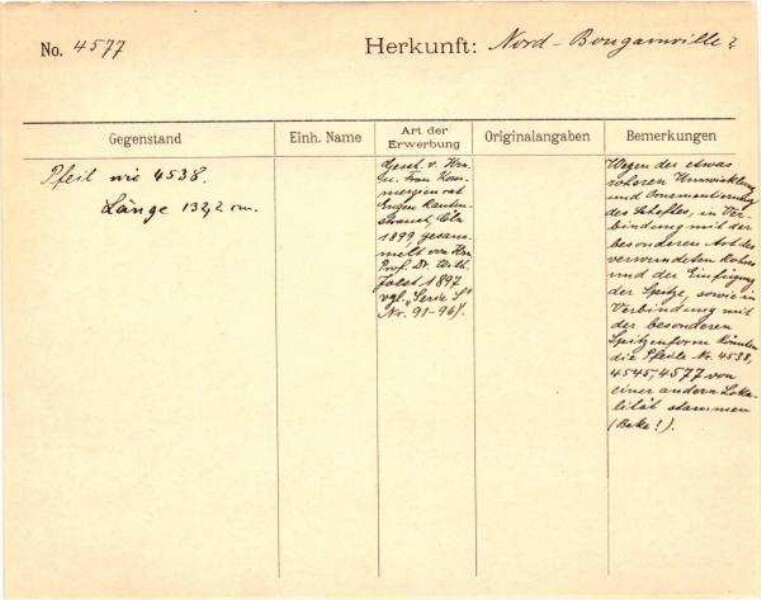 No. 4577
Herkunft: Nord-Bougainville?
Gegenstand
Einh. Name
Art der Erwerbung
Originalangaben
Bemerkungen
Pfeil wie 4538.
Länge 132,2 cm.
Gesch. v. Hrn.
u. Frau Kom-
merzienrat
Eugen Rauten-
strauch, Cöln
1899, gesam-
melt von Hrn.
Prof. Dr. Wilh.
Joest 1897
vgl. "Serie S"
Nr. 91-96).
Wegen der etwas
roheren Umwicklung
und Ornamentierung
des Schaftes, in Ver-
bindung mit der
besonderen Art des
verwendeten Rohrs
und der Einfügung
der Spitze, sowie in
Verbindung mit
der besonderen
Spitzenform könnten
die Pfeile Nr. 4538,
4545, 4577 von
einer andern Loka-
lität stammen
(Buka!).